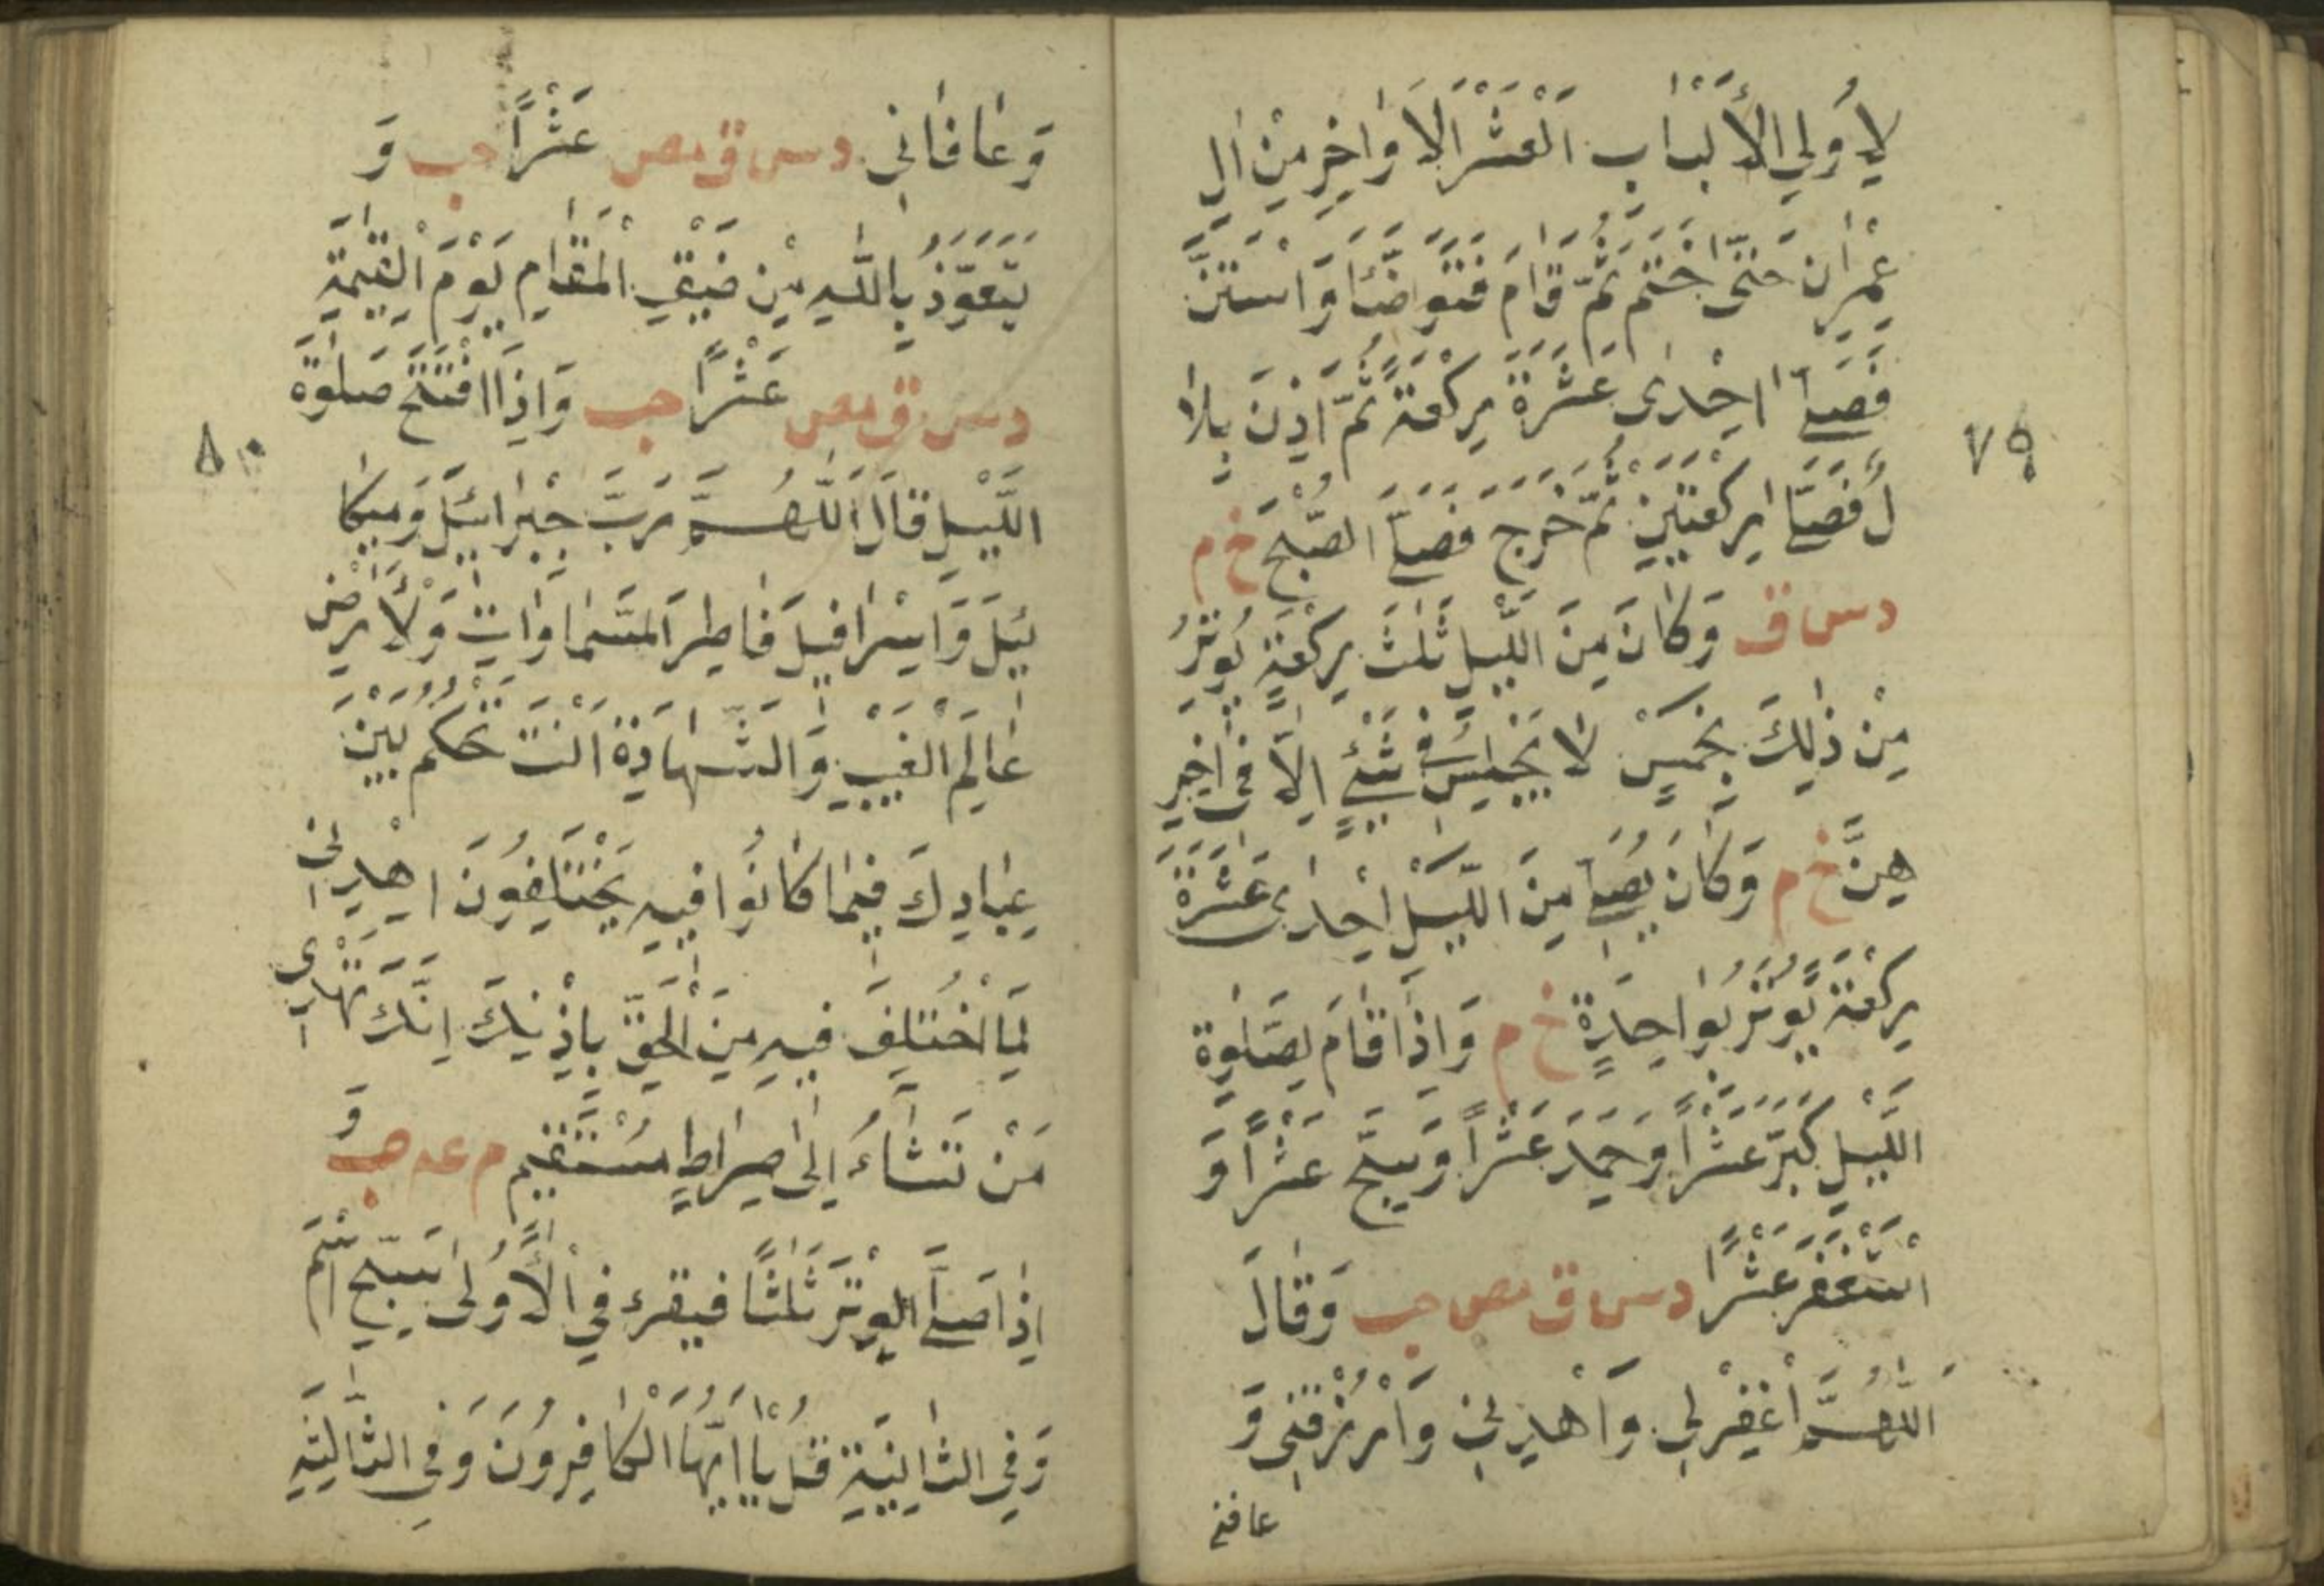 لِأُولِي الْأَلْبَابِ الْعَشْرَ الْأَوَاخِرِ مِنْ اٰلِ
عِمْرَانَ حَتّٰى خَتَمَ ثُمَّ قَامَ فَتَوَضَّئَا وَاسْتَنَّ
فَصَلّٰے اِحْدٰى عَشَرَةَ رَكْعَةً ثُمَّ اَذِنَ بِلَا
لُ فَصَلّٰے رَكْعَتَيْنِ ثُمَّ خَرَجَ فَصَلّٰے الصُّبْحَ خ م
د س ق وَكَانَ مِنَ اللَّيْلِ ثَلٰثَ رَكْعَةٍ يُوتِرُ
مِنْ ذٰلِكَ بِخَمْسٍ لَا يَجْلِسُ فِى شَئْ اِلَّا فِى اٰخِرِ
هِنَّ خ م وَكَانَ يُصَلِّے مِنَ اللَّيْلِ اِحْدٰى عَشْرَةَ
رَكْعَةً يُوتِرُ بِوَاحِدَةٍ خ م وَاِذَا قَامَ لِصَلٰوةِ
اللَّيْلِ كَبَّرَ عَشْرًا وَحَمِدَ عَشْرًا وَسَبَّحَ عَشْرًا وَ
اسْتَغْفَرَ عَشْرًا د س ق مص حب وَقَالَ
اَللّٰهُمَّ اغْفِرْ لِي وَاهْدِنِى وَارْزُقْنِى وَ
عافنى
٧٩
وَعَافَانِى د س ق مص عَشْرًا حب وَ
يَتَعَوَّذُ بِاللّٰهِ مِنْ ضَيْقِ الْمَقَامِ يَوْمَ الْقِيٰمَةِ
د س ق مص عَشْرًا حب وَاِذَا افْتَتَحَ صَلٰوةَ
اللَّيْلِ قَالَ اَللّٰهُمَّ رَبَّ جِبْرَائِيلَ وَمِيكَا
ئِيلَ وَاِسْرَافِيلَ فَاطِرَ السَّمَاوَاتِ وَلْأَرْضِ
عَالِمَ الْغَيْبِ وَالشَّهَادَةِ اَنْتَ تَحْكُمُ بَيْنَ
عِبَادِكَ فِيمَا كَانُوا فِيهِ يَخْتَلِفُونَ اِهْدِنِى
لِمَا اخْتُلِفَ فِيهِ مِنَ الْحَقِّ بِاِذْنِكَ اِنَّكَ تَهْدِى
مَنْ تَشَاءُ اِلٰى صِرَاطٍ مُسْتَقِيمٍ م عه حب وَ
اِذَا صَلَّے الْوِتْرَ ثَلٰثًا فيقرء فِي الْأُولٰى سَبِّحِ اسْمَ
وَفِي الثَّانِيَةِ قُلْ يَا اَيُّهَا الْكَافِرُونَ وَفِي الثَّالِثَةِ
٨٠